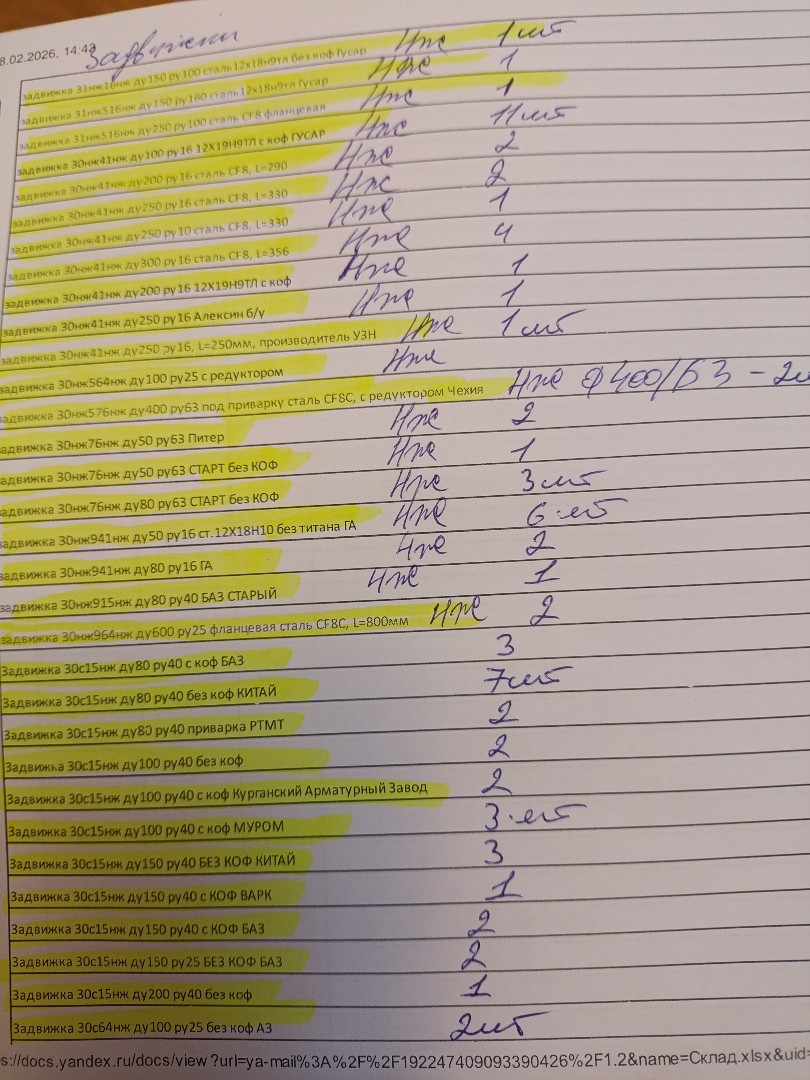 8.02.2026, 14:43 Задвижки
задвижка 31нж16нж ду150 ру100 сталь12х18н9тл без коф Гусар Нж 1шт
задвижка 31нж516нж ду150 ру160 сталь12х18н9тл Гусар Нж 1
задвижка 31нж516нж ду250 ру100 сталь CF8 фланцевая Нж 1
задвижка 30нж41нж ду100 ру16 12Х19Н9ТЛ с коф ГУСАР Нж 11шт
задвижка 30нж41нж ду200 ру16 сталь CF8, L=290 Нж 2
задвижка 30нж41нж ду250 ру16 сталь CF8, L=330 Нж 2
задвижка 30нж41нж ду250 ру10 сталь CF8, L=330 Нж 1
задвижка 30нж41нж ду300 ру16 сталь CF8, L=356 Нж 4
задвижка 30нж41нж ду200 ру16 12Х19Н9ТЛ с коф Нж 1
задвижка 30нж41нж ду250 ру16 Алексин б/у Нж 1
задвижка 30нж41нж ду250 ру16, L=250мм, производитель УЗН Нж 1шт
задвижка 30нж564нж ду100 ру25 с редуктором Нж
задвижка 30нж576нж ду400 ру63 под приварку сталь CF8C, с редуктором Чехия Нж ф400/63 - 2ш
задвижка 30нж76нж ду50 ру63 Питер Нж 2
задвижка 30нж76нж ду50 ру63 СТАРТ без КОФ Нж 1
задвижка 30нж76нж ду80 ру63 СТАРТ без КОФ Нж 3шт
задвижка 30нж941нж ду50 ру16 ст.12Х18Н10 без титана ГА Нж 6шт
задвижка 30нж941нж ду80 ру16 ГА Нж 2
задвижка 30нж915нж ду80 ру40 БАЗ СТАРЫЙ Нж 1
задвижка 30нж964нж ду600 ру25 фланцевая сталь CF8C, L=800мм Нж 2
Задвижка 30с15нж ду80 ру40 с коф БАЗ 3
Задвижка 30с15нж ду80 ру40 без коф КИТАЙ 7шт
Задвижка 30с15нж ду80 ру40 приварка РТМТ 2
Задвижка 30с15нж ду100 ру40 без коф 2
Задвижка 30с15нж ду100 ру40 с коф Курганский Арматурный Завод 2
Задвижка 30с15нж ду100 ру40 с коф МУРОМ 3шт
Задвижка 30с15нж ду150 ру40 БЕЗ КОФ КИТАЙ 3
Задвижка 30с15нж ду150 ру40 с КОФ ВАРК 1
Задвижка 30с15нж ду150 ру40 с КОФ БАЗ 2
Задвижка 30с15нж ду150 ру25 БЕЗ КОФ БАЗ 2
Задвижка 30с15нж ду200 ру40 без коф 1
Задвижка 30с64нж ду100 ру25 без коф АЗ 2шт
s://docs.yandex.ru/docs/view ?url=ya-mail%3A%2F%2F192247409093390426%2F1.2&name=Склад.xlsx&uid=